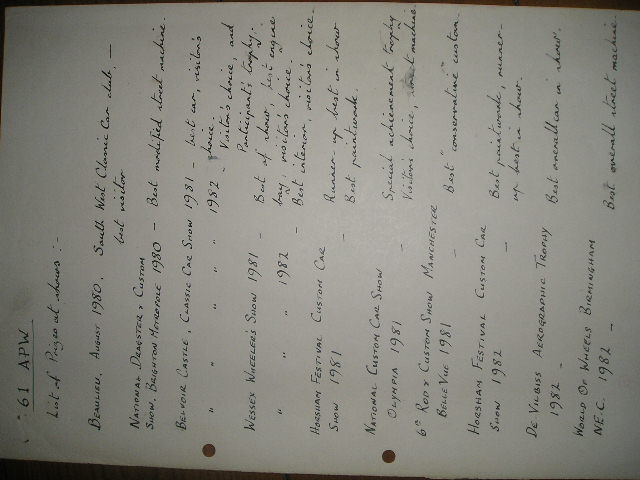 "61 APW
List of Prizes at shows :-
BEAULIEU, AUGUST 1980. South West Classic Car club. —
best visitor
NATIONAL DRAGSTER & CUSTOM
SHOW, BRIGHTON METROPOLE 1980 — Best modified street machine.
BELVOIR CASTLE, CLASSIC CAR SHOW 1981 - best car, visitors
choice.
" " " " 1982 - Visitors choice, and
Participants trophy.
WESSEX WHEELERS SHOW 1981 - Best of show, best engine
bay, visitors choice.
" " " 1982 - Best interior, visitors choice.
HORSHAM FESTIVAL CUSTOM CAR
SHOW 1981 - Runner up best in show
Best paintwork.
NATIONAL CUSTOM CAR SHOW
OLYMPIA 1981 - Special achievement trophy
Visitors choice, street machine
6th ROD & CUSTOM SHOW MANCHESTER
BELLE VUE 1981 - Best "conservative" custom.
HORSHAM FESTIVAL CUSTOM CAR
SHOW 1982 - Best paintwork, runner-
up best in show.
DE VILBISS AEROGRAPHIC TROPHY
1982 - Best overall car in show.
WORLD OF WHEELS BIRMINGHAM
N.E.C. 1982 - Best overall street machine